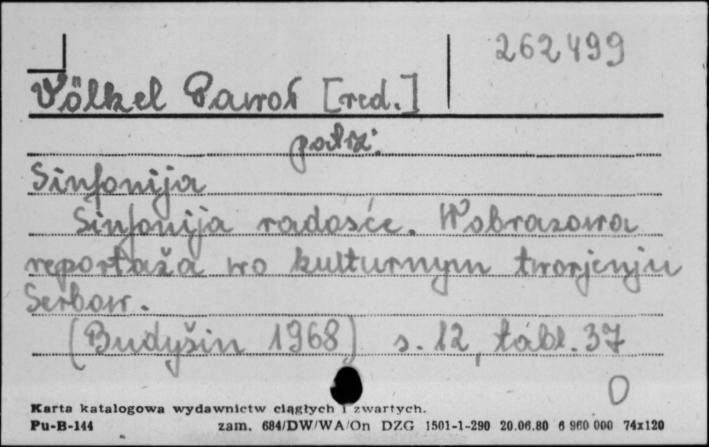 262499
Völkel Pawoł [red.]
patrz:
Sinfonija
Sinfonija radosće. Wobrazowa
reportaža wo kulturnym tworjenju
Serbow.
(Budyšin 1968) s. 12, tabl. 37
0
Karta katalogowa wydawnictw ciągłych i zwartych.
Pu-B-144 zam. 684/DW/WA/On DZG 1501-1-290 20.06.80 6 960 000 74x120